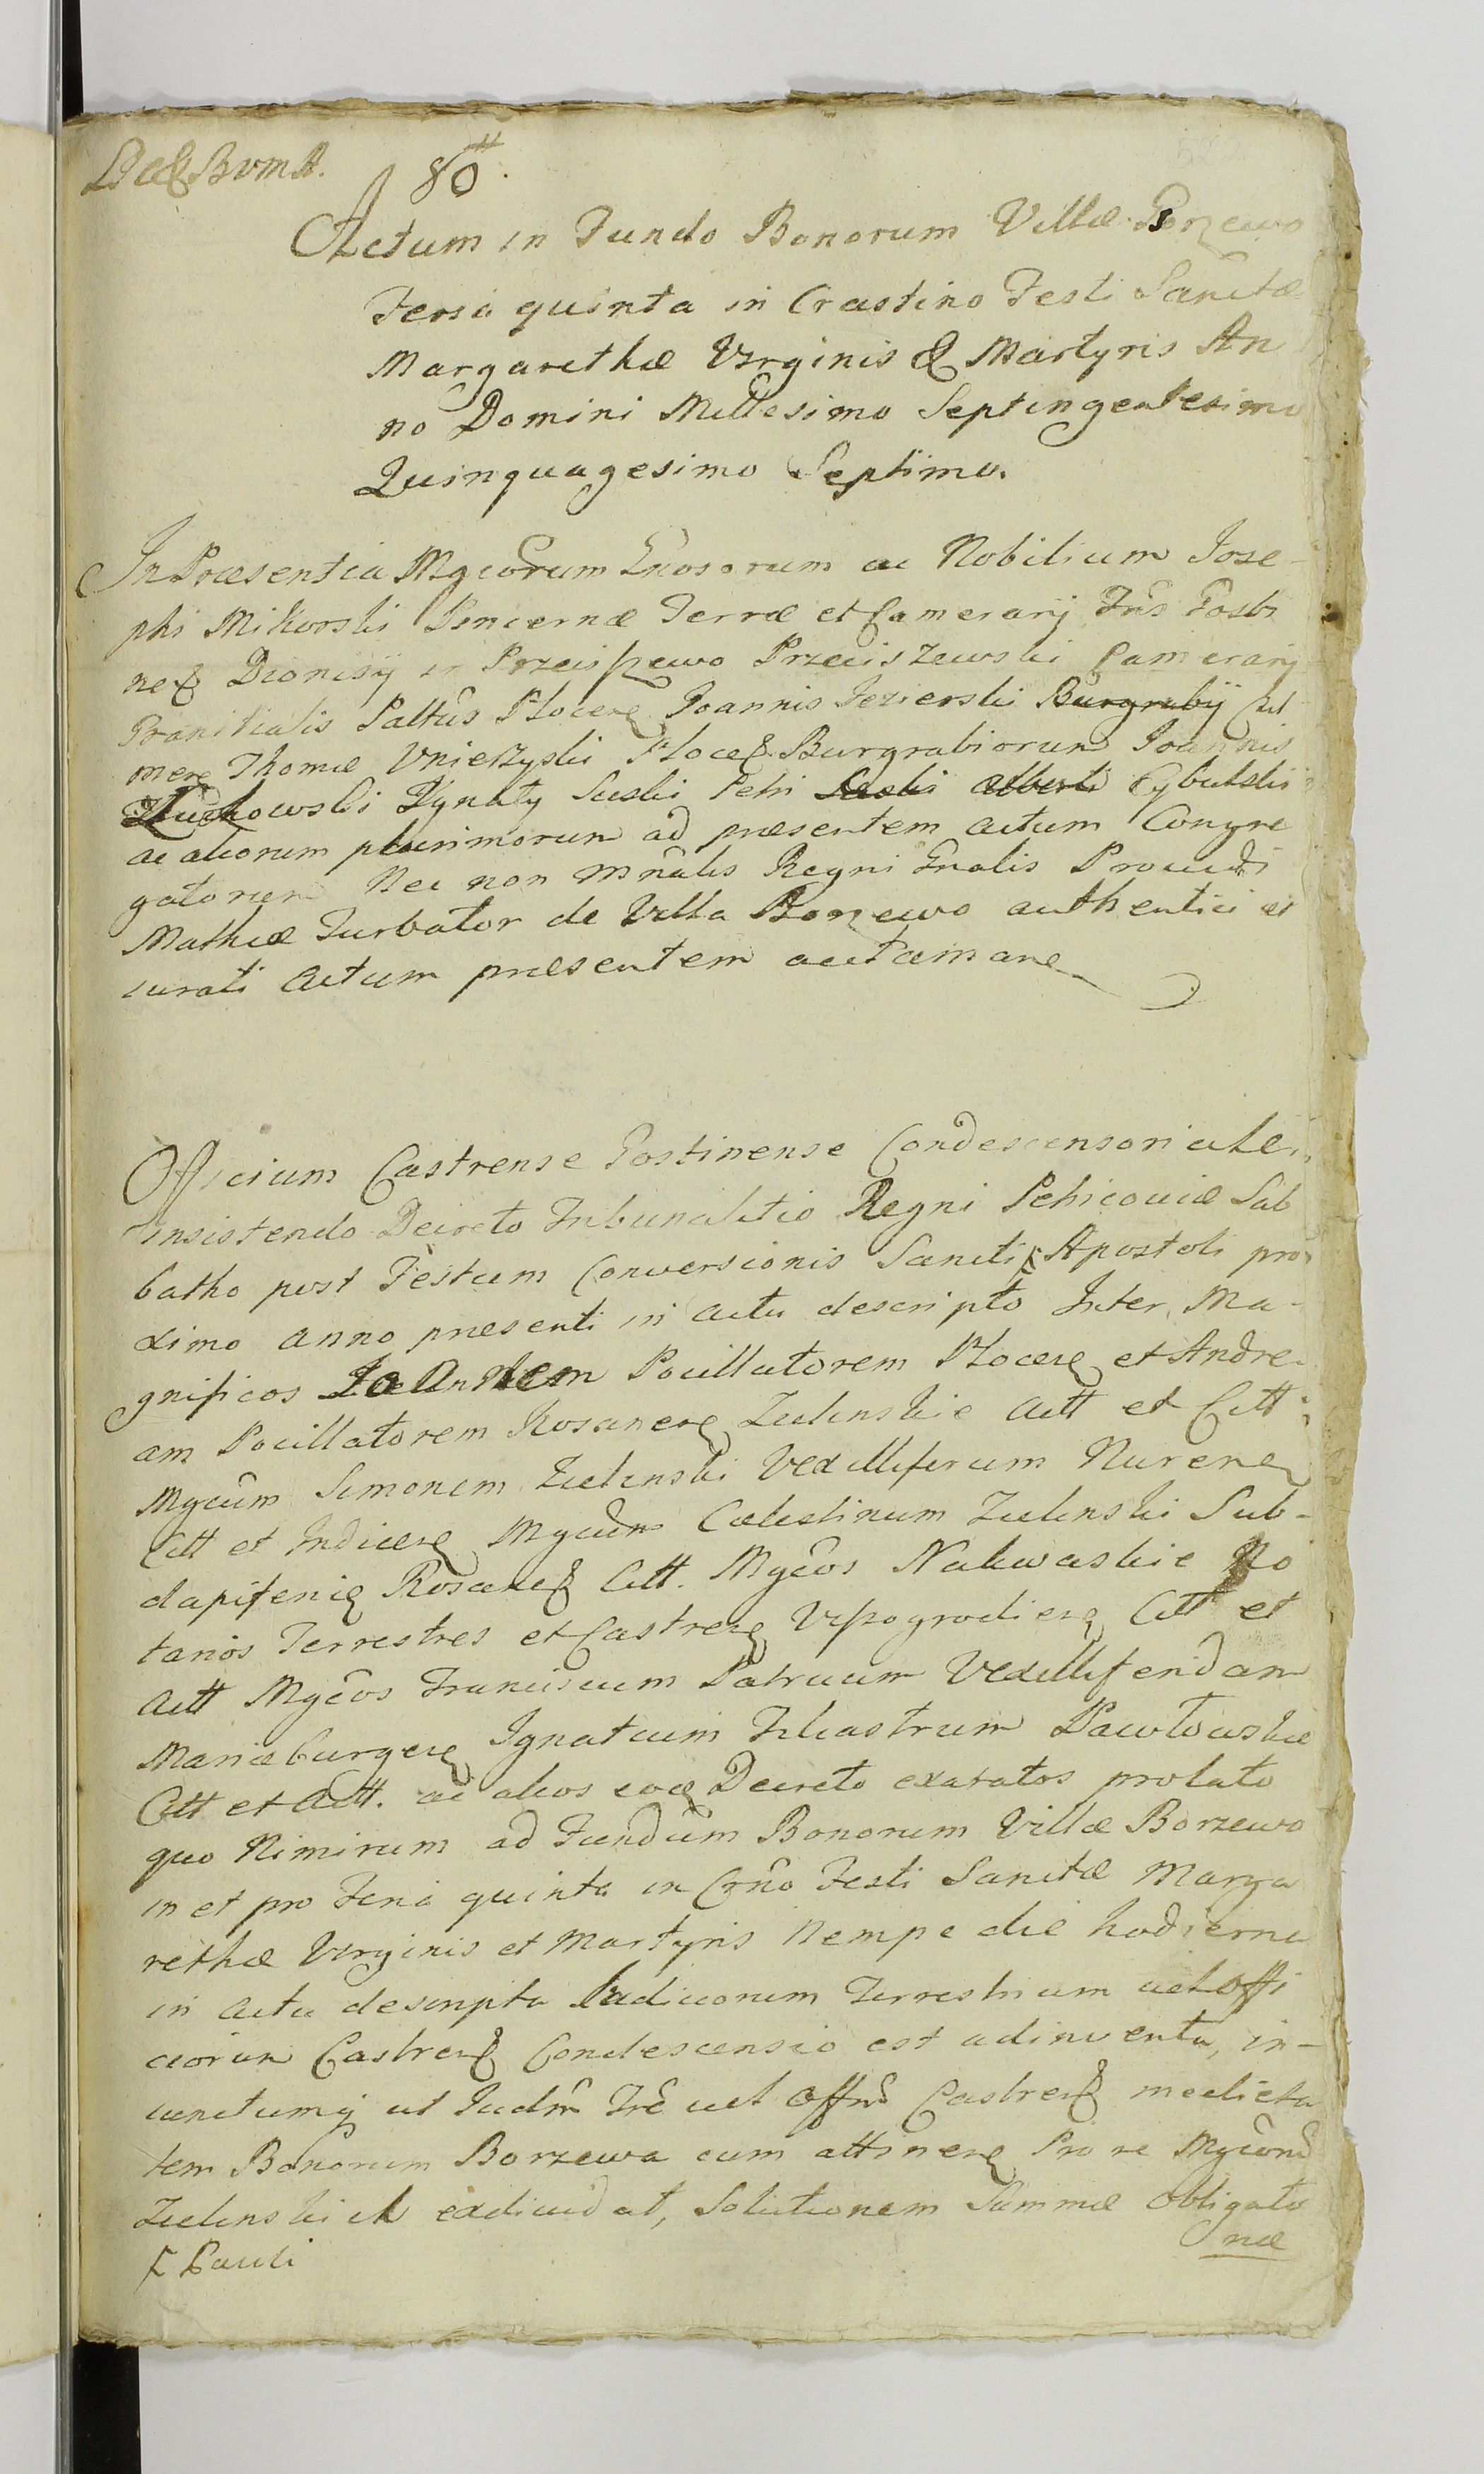 80
Actum in Fundo Bonorum Villæ Borzewo
Feria quinta in Crastino Festi Sanctæ
Margarethæ Virginis & Martyris An
no Domini Millesimo Septingentesimo
Quinquagesimo Septimo.
In Præsentia Mgcorum Gnosorum ac Nobilium Jose-
phi Mikorski Pincernæ Terræ et Camerarij Gosti
Dionisij in Przeciszewo Przeciszewski Camerarij
Granitialis Joannis Jezierski Burgrabij
Thomæ Burgrabiorum Joannis
Ignaty Suski Petri Suski Alberti Cybulski
ac aliorum plurimorum ad præsentem actum Congre
gatorum Nec non Regni Gnalis Providi
Mathiæ Turbator de Villa Borzewo authentici et
iurati actum præsentem
Officium Castrense Gostinense Condescensoriale
insistendo Decreto Tribunalitio Regni Petricoviæ Sab
batho post Festum Conversionis Sancti Apostoli pro
ximo anno præsenti in actu descripto Inter Ma-
gnificos Joannem Pocillatorem Plocen et Andre-
am Pocillatorem Rosanen Zielinskie Actt et Citt
Mgcum Simonem Zielinski Vexilliferum Nuren
Citt et Mgcum Cælestinum Zielinski Sub-
dapiferum Rosanen Citt. Mgcos Nakwaskie No
tarios Terrestres et Castren Wyszogrodien Citt et
Actt Mgcos Franciscum Patruum Vexilliferidam
Mariæburgen Ignatium Filiastrum Pawłowskie
Citt et Actt. ac alios eoq Decreto exaratos prolato
quo Nimirum ad Fundum Bonorum Villæ Borzewo
in et pro Feria quinta in Crno Festi Sanctæ Marga
rethæ Virginis et Martyris Nempe die hodierna
in actu descripta Judiciorum Terrestrium vel Offi
ciorum Castren Condescensio est adinventa, in-
iunctumq ut Judm Tre vel Offm Castren medieta
tem Bonorum Borzewa cum attinen Pro re Mgcorum
Zielinskich exdividat, Solutionem Summæ Obligato
riæ
Pauli